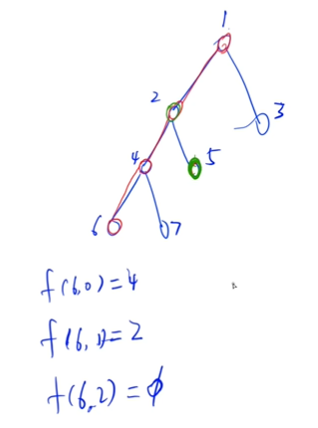 1
2
3
4
5
6
7
f(6,0)=4
f(6,1)=2
f(6,2)=φ